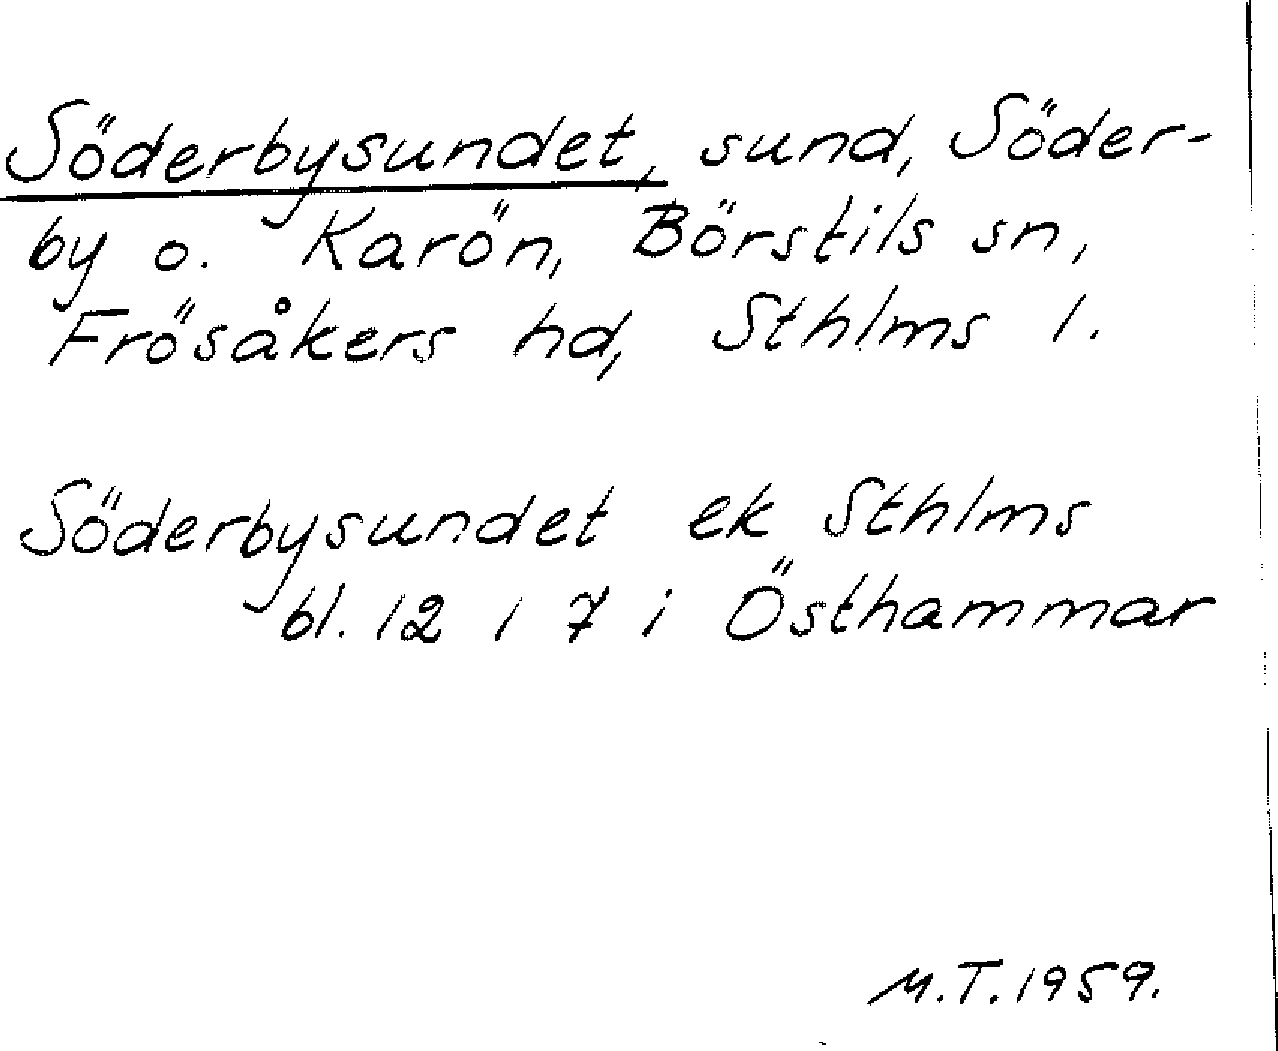 Söderbysundet, sund, Söder-
by o. Karön, Börstils sn,
Frösåkers hd, Sthlms l.
Söderbysundet ek Sthlms
bl. 12 i 7 i Östhammar
M.T. 1959.